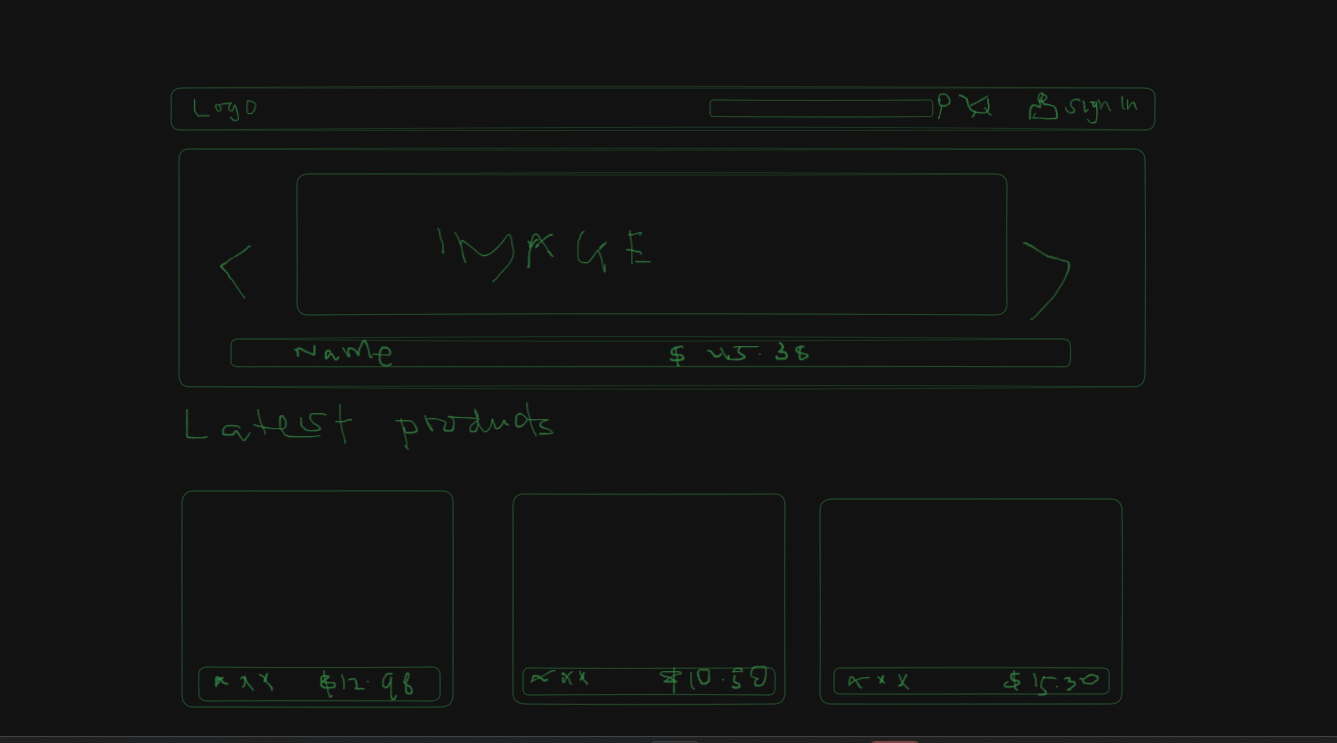 Logo Sign In
IMAGE
Name $ 45.38
Latest products
xxx $12.98
xxx $10.50
xxx $15.30